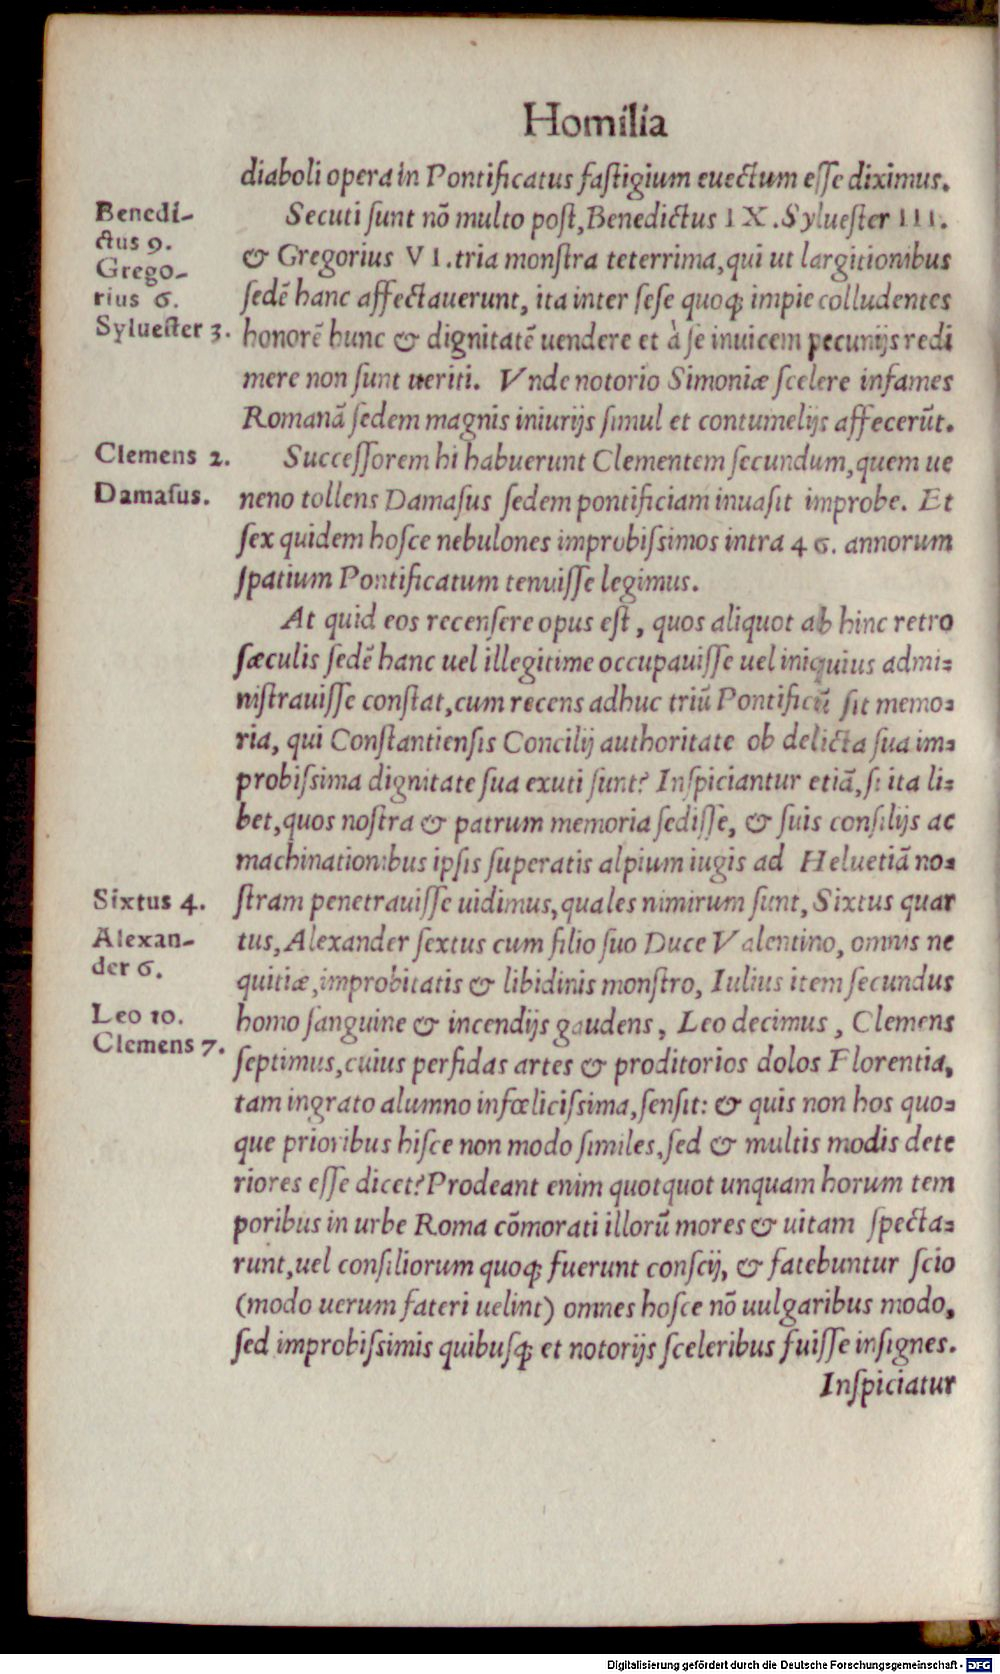 Homilia
diaboli opera in Pontificatus faſtigium euectum eſſe diximus.
Benedi-
ctus 9.
Grego-
rius 6.
Sylueſter 3.
Secuti ſunt nō multo poſt, Benedictus IX. Sylueſter III.
& Gregorius VI. tria monſtra teterrima, qui ut largitionibus
ſedē hanc affectauerunt, ita inter ſeſe quoq; impie colludentes
honorē hunc & dignitatē uendere et à ſe inuicem pecunijs redi
mere non ſunt ueriti. Vnde notorio Simoniæ ſcelere infames
Romanā ſedem magnis iniurijs ſimul et contumelijs affecerūt.
Clemens 2.
Damaſus.
Succeſſorem hi habuerunt Clementem ſecundum, quem ue
neno tollens Damaſus ſedem pontificiam inuaſit improbe. Et
ſex quidem hoſce nebulones improbiſsimos intra 46. annorum
ſpatium Pontificatum tenuiſſe legimus.
At quid eos recenſere opus eſt, quos aliquot ab hinc retro
ſæculis ſedē hanc uel illegitime occupauiſſe uel iniquius admi=
niſtrauiſſe conſtat, cum recens adhuc triū Pontificū ſit memo=
ria, qui Conſtantienſis Concilij authoritate ob delicta ſua im=
probiſsima dignitate ſua exuti ſunt? Inſpiciantur etiā, ſi ita li=
bet, quos noſtra & patrum memoria ſediſſe, & ſuis conſilijs ac
machinationibus ipſis ſuperatis alpium iugis ad Heluetiā no=
Sixtus 4.
Alexan-
der 6.
Leo 10.
Clemens 7.
ſtram penetrauiſſe uidimus, quales nimirum ſunt, Sixtus quar
tus, Alexander ſextus cum filio ſuo Duce Valentino, omnis ne
quitiæ, improbitatis & libidinis monſtro, Iulius item ſecundus
homo ſanguine & incendijs gaudens, Leo decimus, Clemens
ſeptimus, cuius perfidas artes & proditorios dolos Florentia,
tam ingrato alumno infœliciſsima, ſenſit: & quis non hos quo=
que prioribus hiſce non modo ſimiles, ſed & multis modis dete
riores eſſe dicet? Prodeant enim quotquot unquam horum tem
poribus in urbe Roma cōmorati illorū mores & uitam ſpecta=
runt, uel conſiliorum quoq; fuerunt conſcij, & fatebuntur ſcio
(modo uerum fateri uelint) omnes hoſce nō uulgaribus modo,
ſed improbiſsimis quibuſq; et notorijs ſceleribus fuiſſe inſignes.
Inſpiciatur
Digitalisierung gefördert durch die Deutsche Forschungsgemeinschaft - DFG